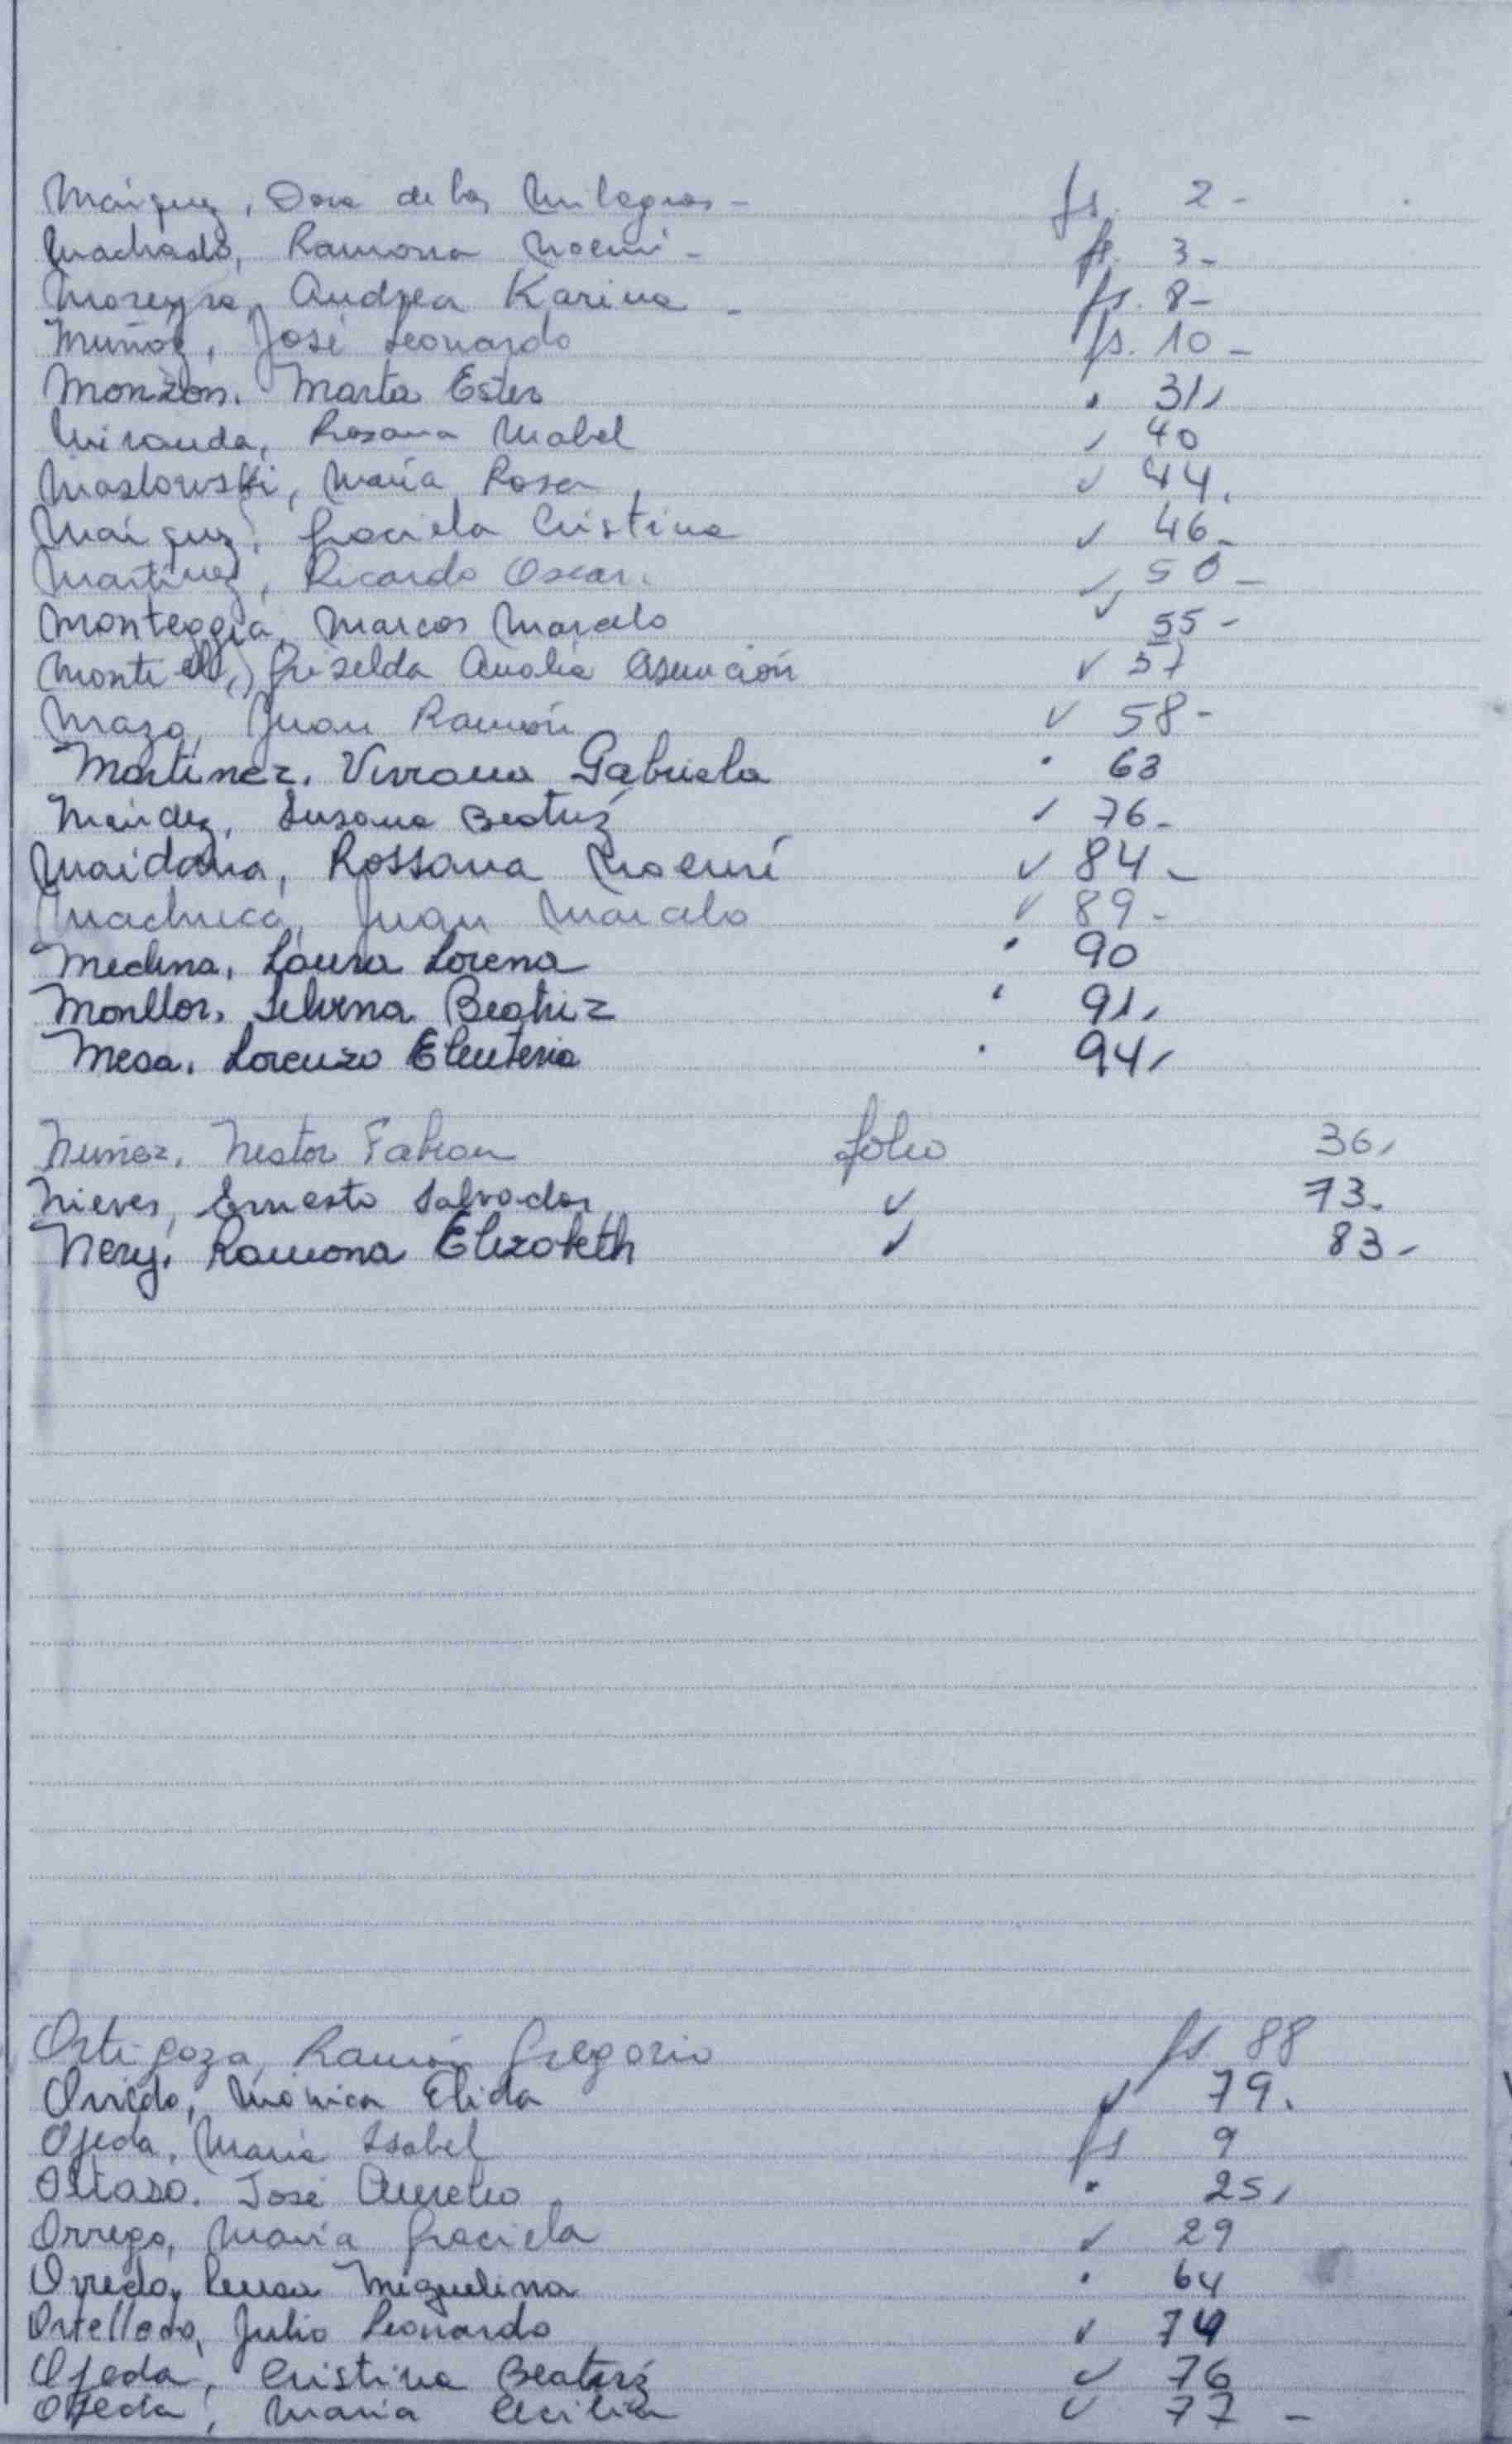 Márquez, Dora de los Milagros - fs. 2 -
Machado, Ramona Noemí - fs. 3 -
Moreyra, Andrea Karina - fs. 8 -
Muñoz, José Leonardo fs. 10 -
Monzón. Marta Ester 31,
Miranda, Rosana Mabel 40
Maslowski, María Rosa 44.
Márquez, Graciela Cristina 46 -
Martínez, Ricardo Oscar. 50 -
Monteggia, Marcos Marcelo 55 -
Montiel, Griselda Analía Asunción 57
Mazo, Juan Ramón 58 -
Martínez. Viviana Gabriela 63
Méndez, Susana Beatriz 76 -
Maidana, Rossana Noemí 84 -
Machuca, Juan Marcelo 89 -
Medina, Laura Lorena 90
Monllor, Silvina Beatriz 91,
Mesa. Lorenzo Eleuterio 94,
Nuñez. Nestor Fabian folio 36,
Nieves, Ernesto Salvador 73.
Nery. Ramona Elizabeth 83 -
Ortigoza, Ramón Gregorio fs. 88
Oviedo, Mónica Elida 79.
Ojeda, María Isabel fs 9
José Aurelio 25,
Orrego, María Graciela 29
Oviedo, Luisa Miguelina 64
Ortellado, Julio Leonardo 74
Ojeda, Cristina Beatriz 76
Ojeda, María Cecilia 77 -